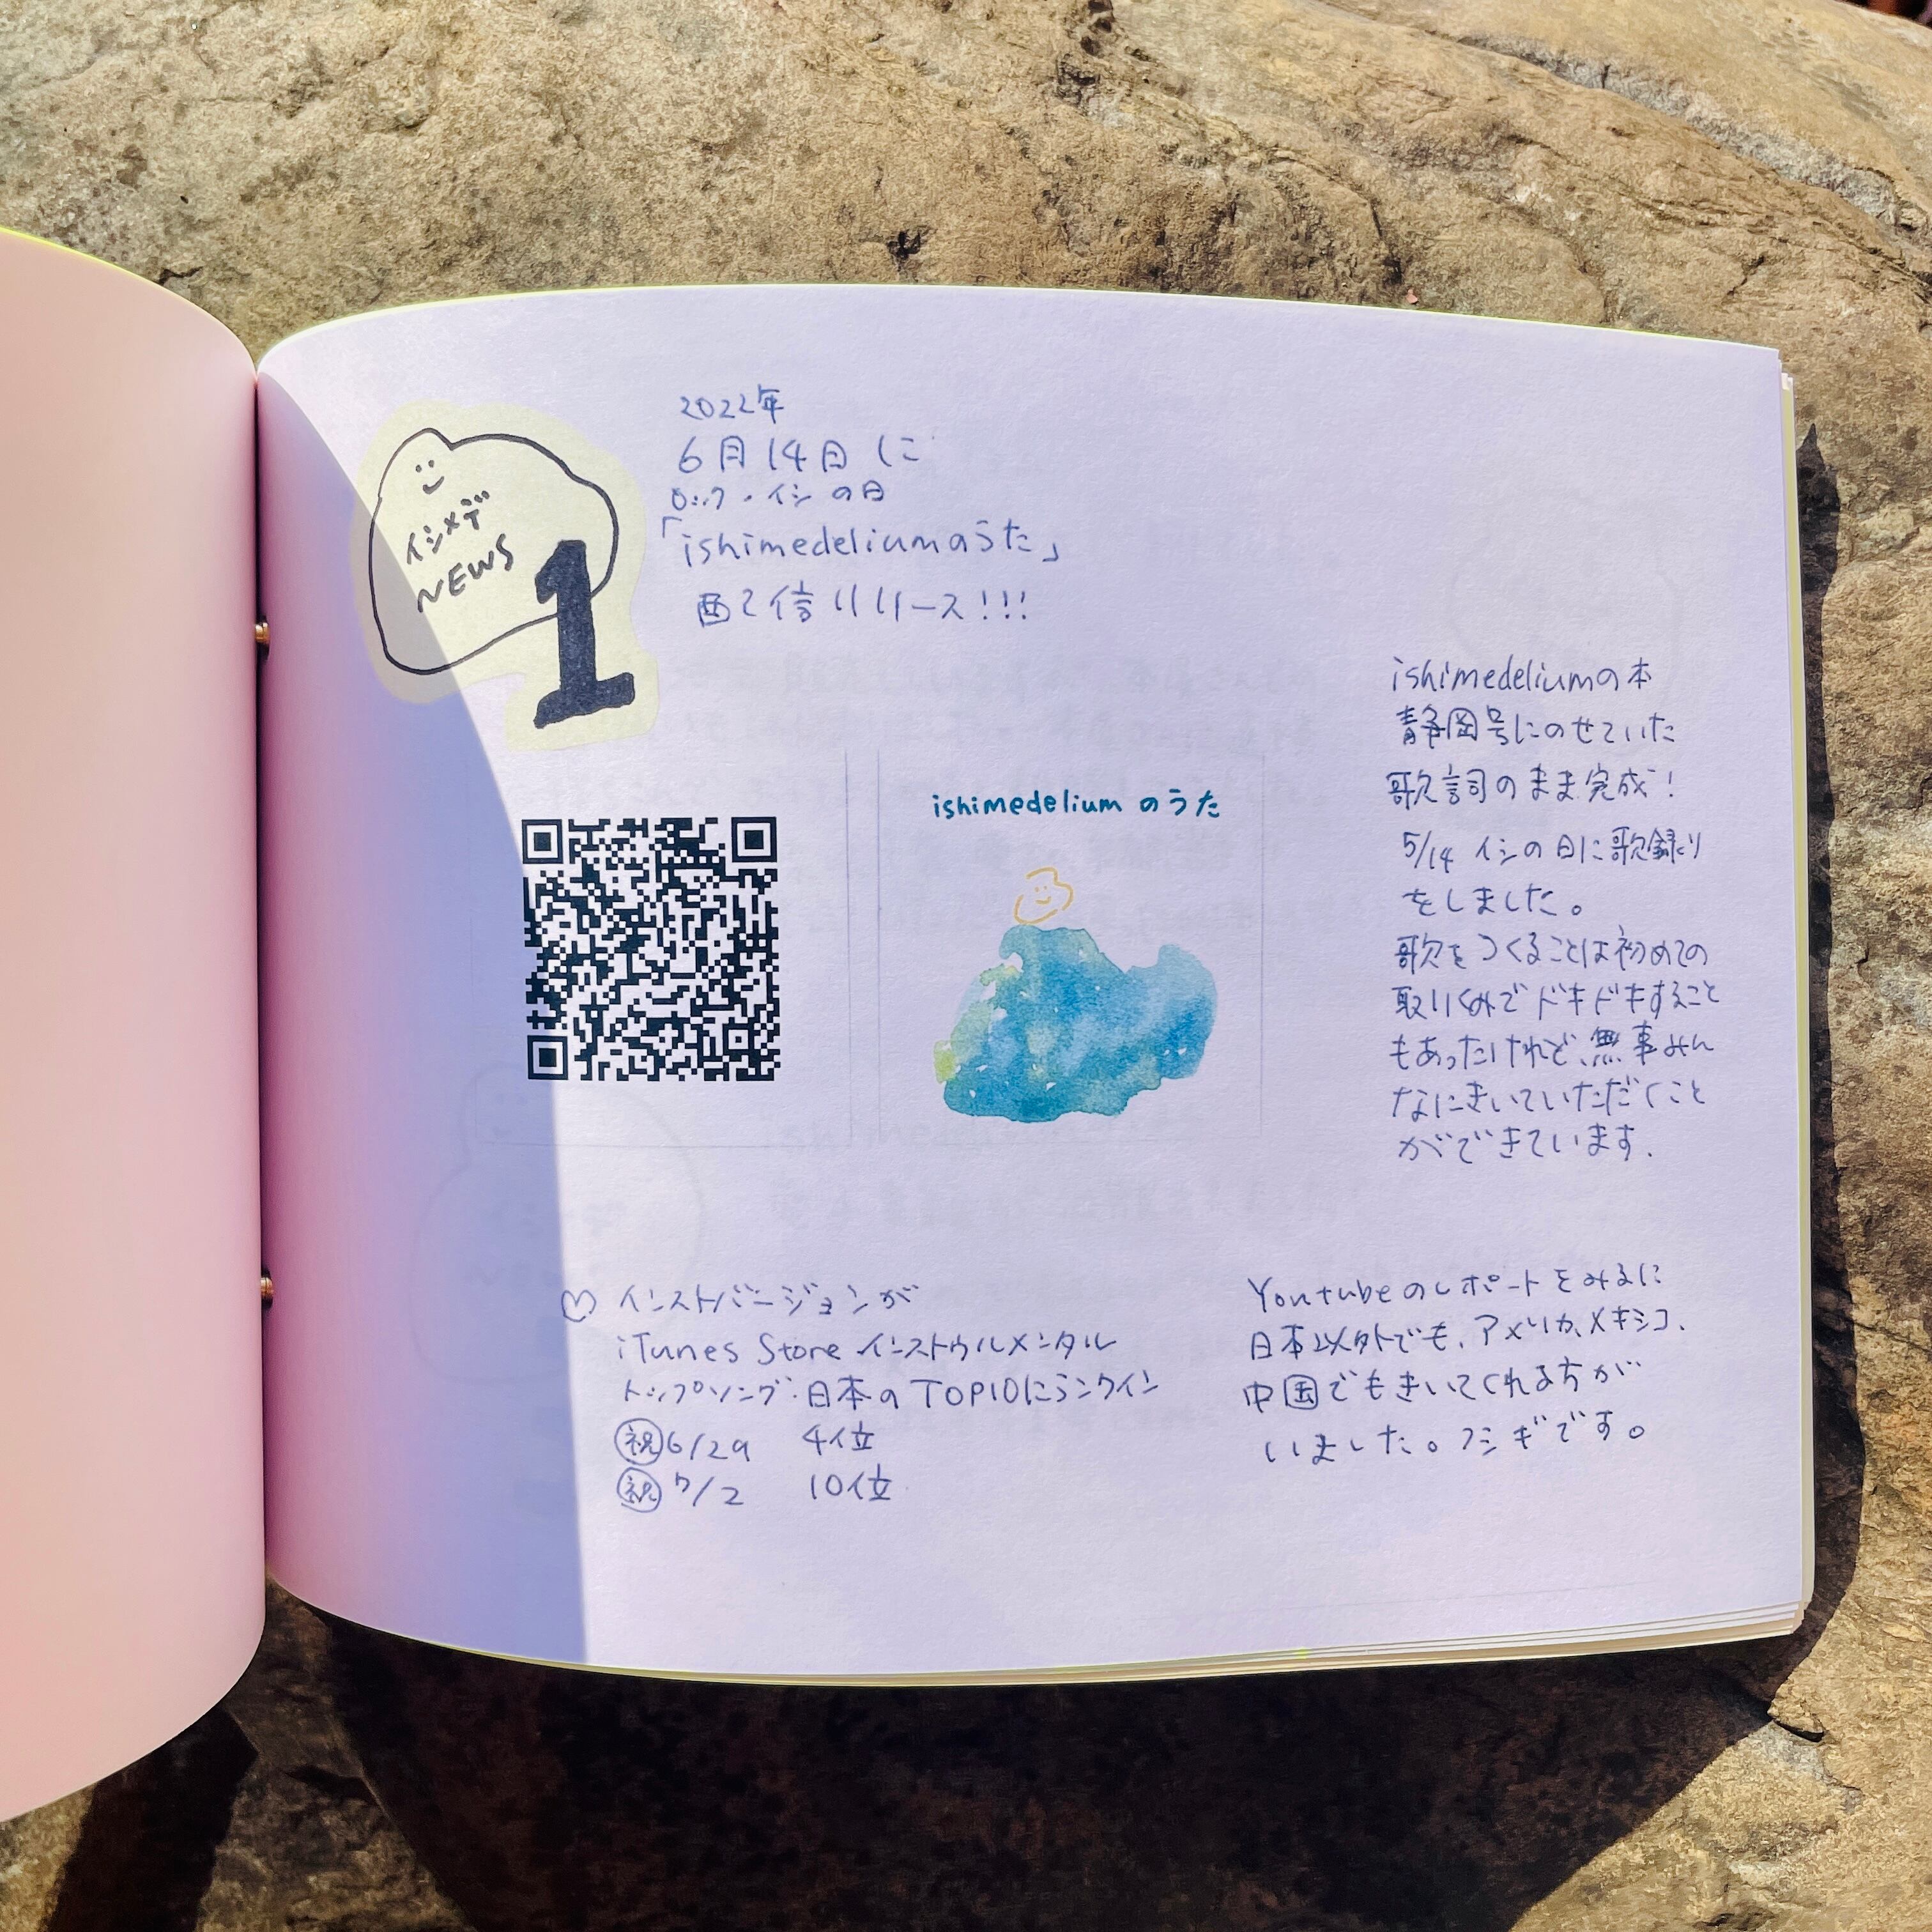 イシメデ
NEWS
1
2022年
6月14日に
ロック・イシの日
「ishimedeliumのうた」
配信リリース!!!
ishimedelium のうた
ishimedeliumの本
静岡号にのせていた
歌詞のまま完成!
5/14 イシの日に歌録り
をしました。
歌をつくることは初めての
取り組みでドキドキすること
もあったけれど、無事みん
なにきいていただくこと
ができています.
♡ インストバージョンが
iTunes Store インストゥルメンタル
トップソング:日本のTOP10にランクイン
祝 6/29 4位
祝 7/2 10位
Youtubeのレポートをみるに
日本以外でも、アメリカ、メキシコ、
中国でもきいてくれる方が
いました。フシギです。